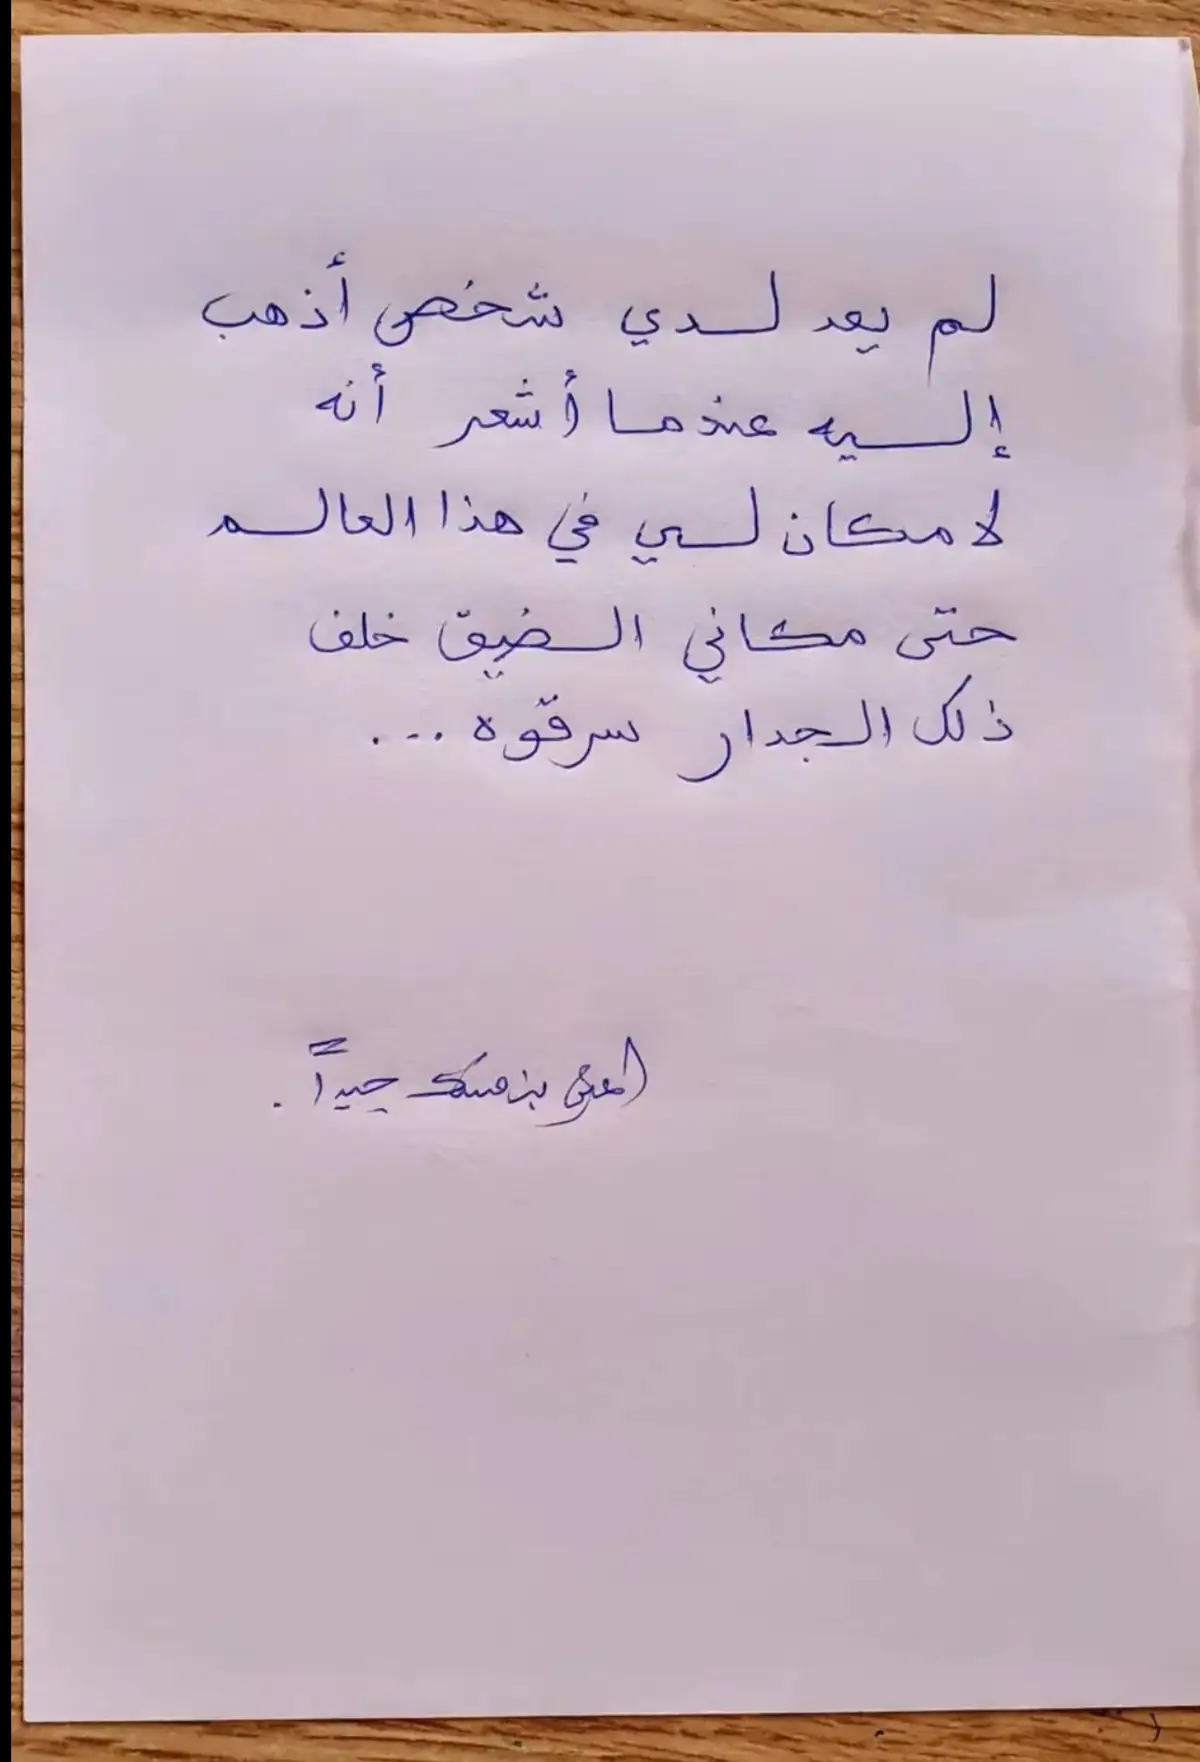 لم يعد لدي شخص أذهب
إليه عندما أشعر أنه
لا مكان لي في هذا العالم
حتى مكاني الضيق خلف
ذلك الجدار سرقوه ...
بنفسك جيداً.